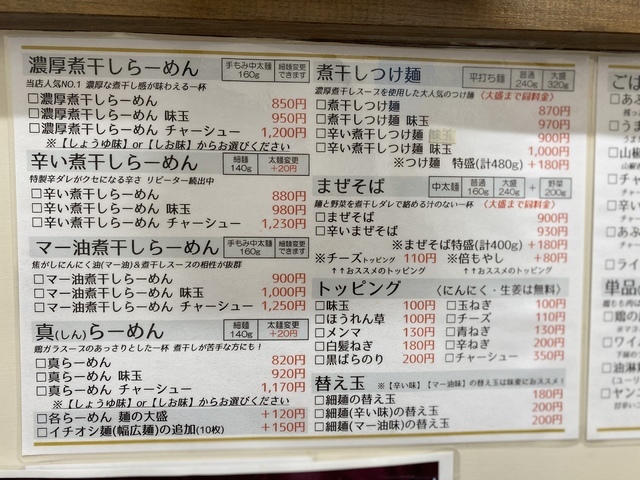 濃厚煮干しらーめん 手もみ中太麺 160g 細麺変更できます
当店人気NO.1 濃厚な煮干し感が味わえる一杯
□濃厚煮干しらーめん 850円
□濃厚煮干しらーめん 味玉 950円
□濃厚煮干しらーめん チャーシュー 1,200円
※【しょうゆ味】or【しお味】からお選びください
辛い煮干しらーめん 細麺 140g 太麺変更 +20円
特製辛ダレがクセになる辛さ リピーター続出中
□辛い煮干しらーめん 880円
□辛い煮干しらーめん 味玉 980円
□辛い煮干しらーめん チャーシュー 1,230円
マー油煮干しらーめん 手もみ中太麺 160g 細麺変更できます
焦がしにんにく油(マー油)&煮干しスープの相性が抜群
□マー油煮干しらーめん 900円
□マー油煮干しらーめん 味玉 1,000円
□マー油煮干しらーめん チャーシュー 1,250円
真(しん)らーめん 細麺 140g 太麺変更 +20円
鶏ガラスープのあっさりとした一杯 煮干しが苦手な方にも!
□真らーめん 820円
□真らーめん 味玉 920円
□真らーめん チャーシュー 1,170円
※【しょうゆ味】or【しお味】からお選びください
□各らーめん 麺の大盛 +120円
□イチオシ麺(幅広麺)の追加(10枚) +150円
煮干しつけ麺 平打ち麺 普通 240g 大盛 320g
濃厚煮干しスープを使用した大人気のつけ麺 〈大盛まで同料金〉
□煮干しつけ麺 870円
□煮干しつけ麺 味玉 970円
□辛い煮干しつけ麺 900円
□辛い煮干しつけ麺 味玉 1,000円
※つけ麺 特盛(計480g) +180円
まぜそば 中太麺 普通 160g 大盛 240g + 野菜 200g
麺と野菜を煮干しダレで絡める汁のない一杯 〈大盛まで同料金〉
□まぜそば 900円
□辛いまぜそば 930円
※まぜそば特盛(400g) +180円
※チーズトッピング 110円 ※倍もやし +80円
↑↑おススメのトッピング ↑↑おススメのトッピング
トッピング 〈にんにく・生姜は無料〉
□味玉 100円 □玉ねぎ 100円
□ほうれん草 100円 □チーズ 110円
□メンマ 130円 □青ねぎ 130円
□白髪ねぎ 180円 □辛ねぎ 200円
□黒ばらのり 200円 □チャーシュー 350円
替え玉 ※【辛い味】【マー油味】の替え玉は味変におススメ!
□細麺の替え玉 180円
□細麺(辛い味)の替え玉 200円
□細麺(マー油味)の替え玉 200円
ごは
□うま
□山椒
□チャ
□ライ
単品
□鶏の
□ワイ
□油淋
□ヤン